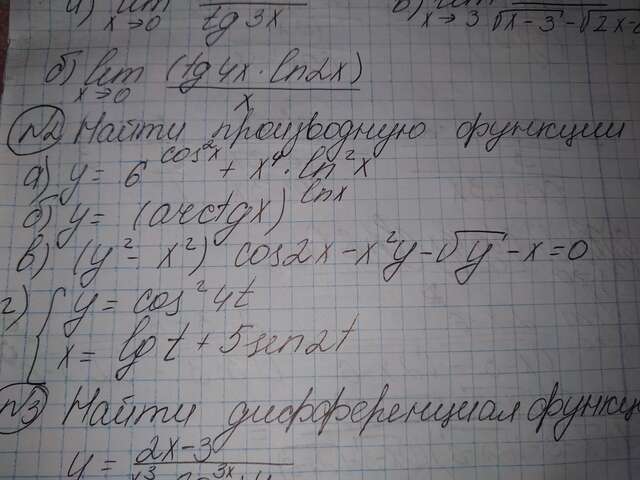 lim x→0 / tg 3x
x→3 √x-3 - √2x
б) lim x→0 (tg 4x · ln 2x) / x
№2 Найти производную функции
а) y = 6^(cos²x) + x⁴ · ln²x
б) y = (arctgx)^(lnx)
в) (y² - x²) cos2x - x²y - √y - x = 0
г) { y = cos²4t
x = lgt + 5sin2t
№3 Найти дифференциал
y = 2x-3